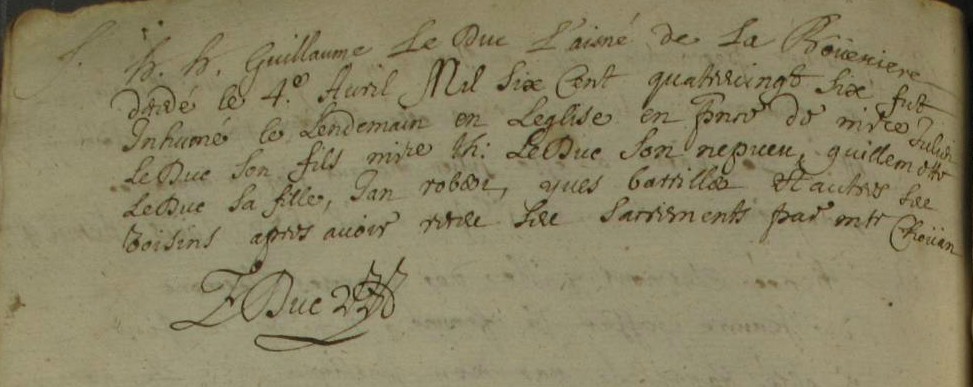 h. h. Guillaume Le Duc L'aisné de La Roüeriere
dcedé le 4.e Avril Mil Six Cent quatrevingt Six fut
Inhumé le Lendemain en Leglise en pnce de mire Julien
Le Duc Son fils mire Th: Le Duc Son nepueu, guillemette
Le Duc Sa fille, Jan yves et autres Ses
voisins apres avoir Les Sacrements par mre Roüan
Duc